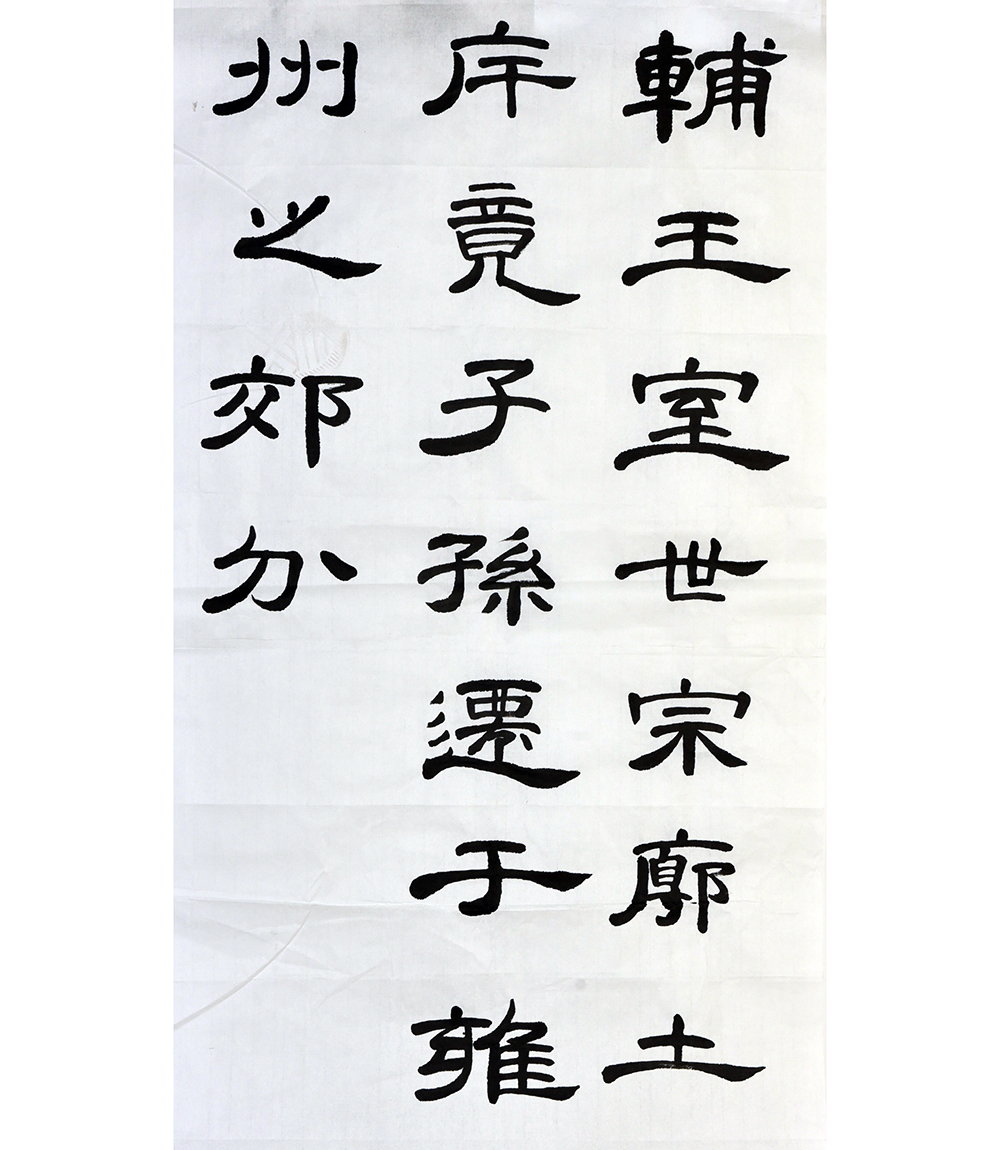 輔王室世宗廓土
斥竟子孫遷于雍
州之郊分